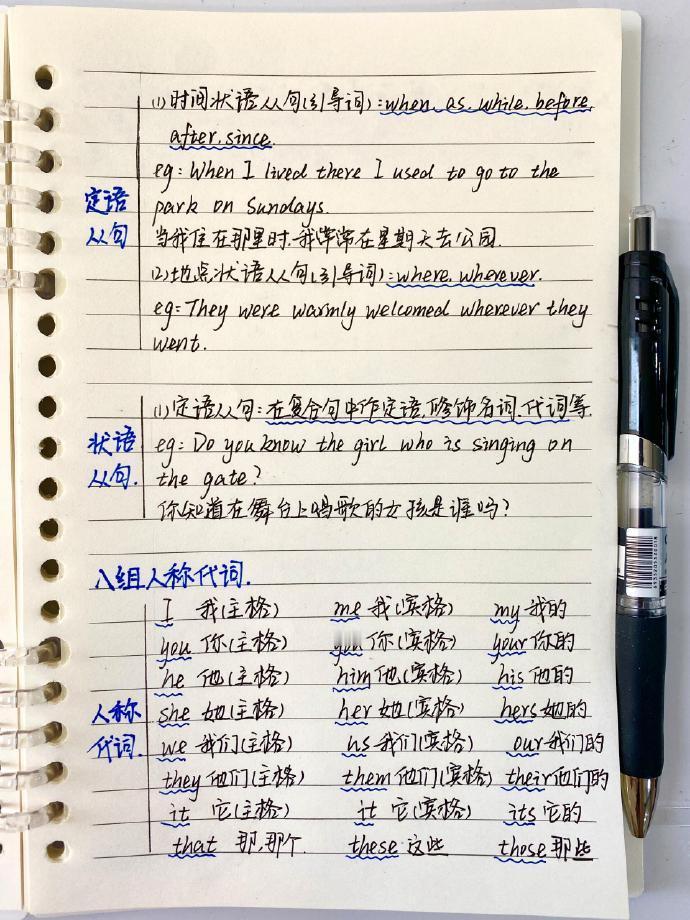 (1)时间状语从句(引导词):when, as, while, before,
after, since.
eg: When I lived there I used to go to the
定语
park on Sundays.
从句
当我住在那里时,我常常在星期天去公园.
(2)地点状语从句(引导词):where, wherever.
eg: They were warmly welcomed wherever they
went.
(1)定语从句:在复合句中作定语,修饰名词、代词等.
状语
eg: Do you know the girl who is singing on
从句.
the gate?
你知道在舞台上唱歌的女孩是谁吗?
八组人称代词.
I 我(主格) me 我(宾格) my 我的
you 你(主格) you 你(宾格) your 你的
he 他(主格) him 他(宾格) his 他的
人称
she 她(主格) her 她(宾格) hers 她的
代词.
we 我们(主格) us 我们(宾格) our 我们的
they 他们(主格) them 他们(宾格) their 他们的
it 它(主格) it 它(宾格) its 它的
that 那,那个. these 这些 those 那些